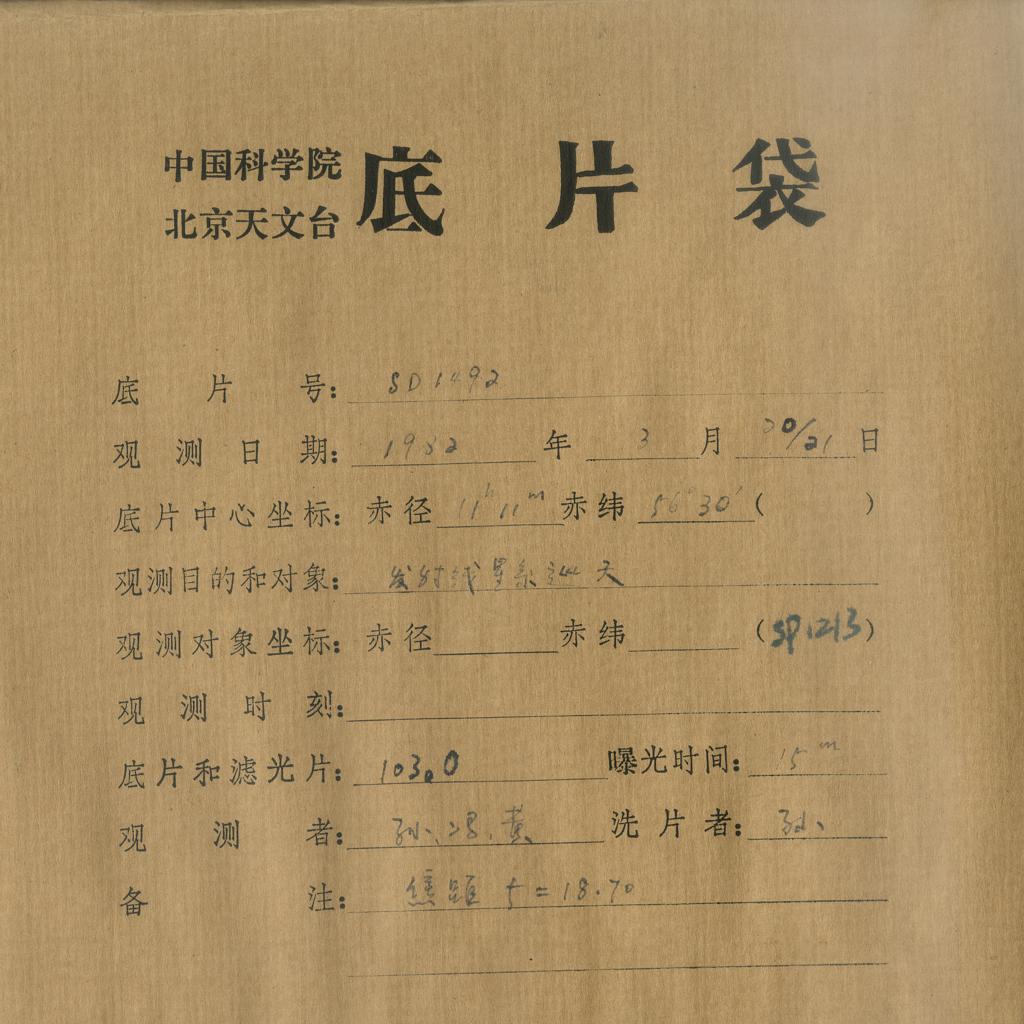 中国科学院
北京天文台
底片袋
底片号: SD1492
观测日期: 1982年3月20/21日
底片中心坐标: 赤径 11ʰ11ᵐ 赤纬 56°30′ ( )
观测目的和对象: 发射线星系 天
观测对象坐标: 赤径 赤纬 (SP1213)
观测时刻:
底片和滤光片: 103aO 曝光时间: 15ᵐ
观测者: 孙、冯、黄 洗片者: 孙、
备注: 焦距 f=18.70